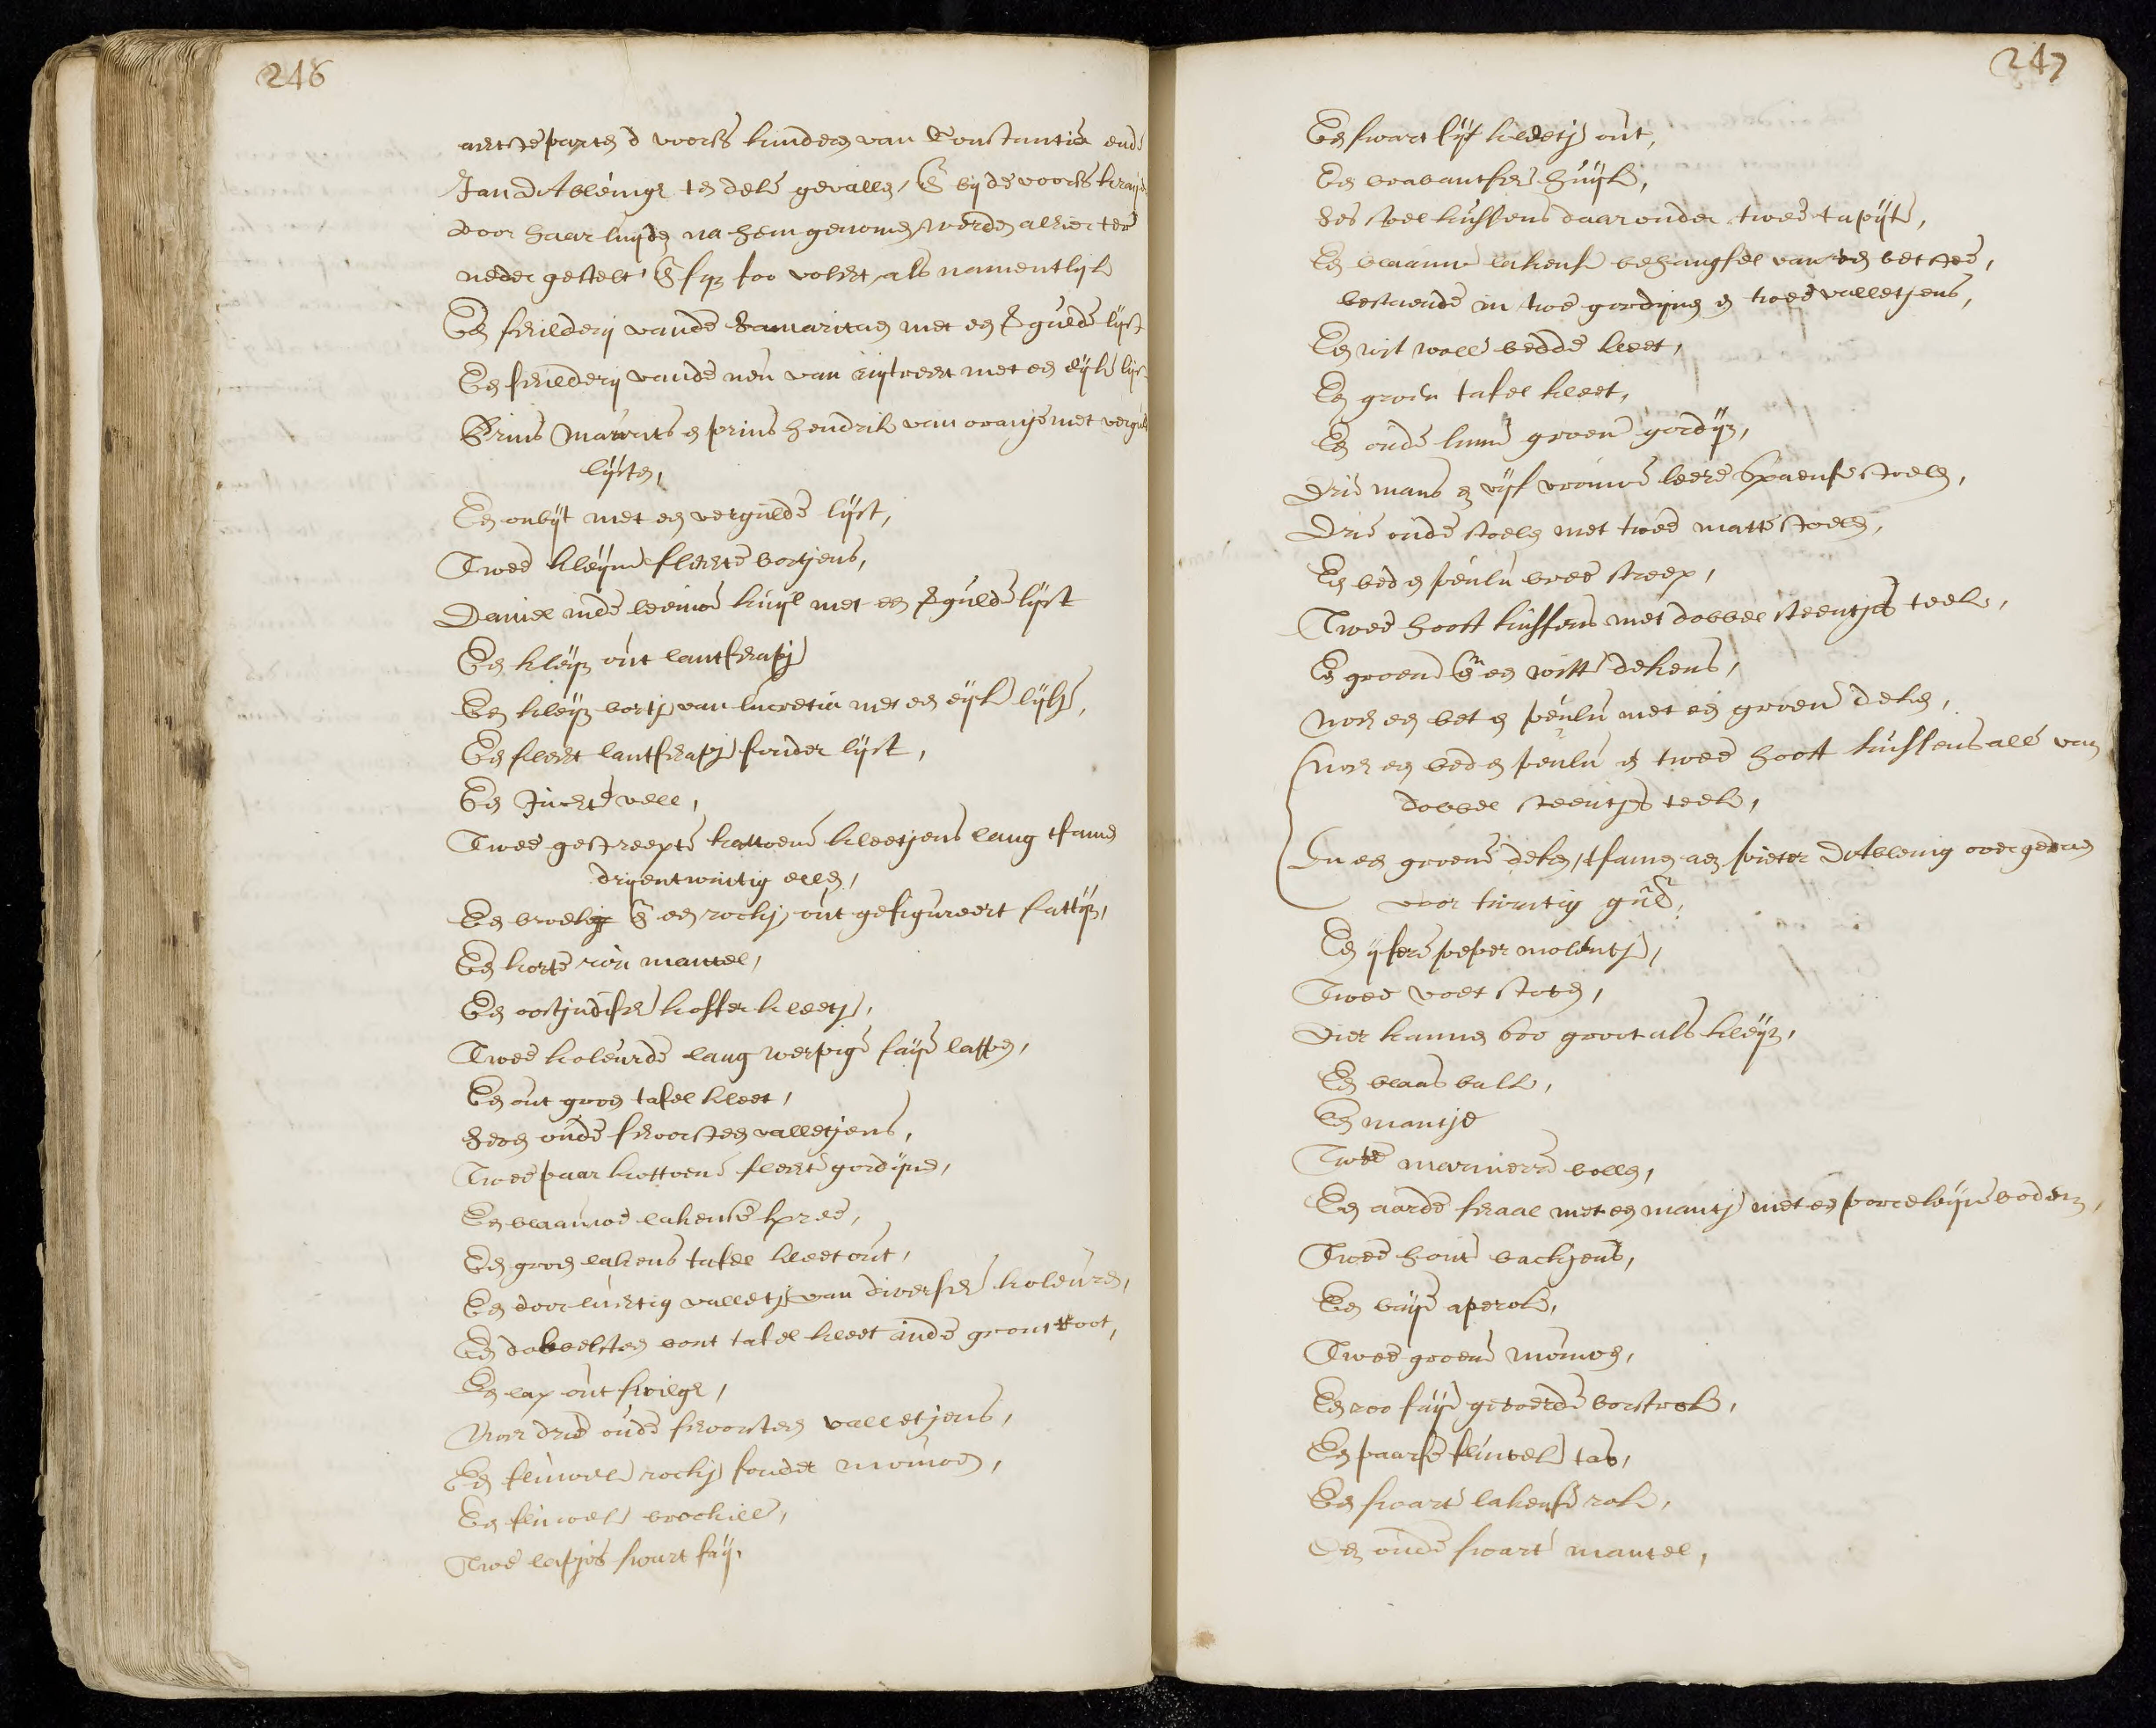 246
achtste parten d' voors. kinderen van Constantia ende
Jan d'Ableingh ten dele gevallen, En by de voors.
door haar luyden na hem genomen werden alhier ter
neder gestelt, En syn soo volcht, als namentlyk
Een schildery vande Samaritaen met een vergulde lyst
Een schildery vande neu van uijtrecht met een eyke lyst
Prins Mauwrits en prins Hendrik van oranje met vergulde
lysten,
Een onbyt met een vergulde lyst,
Twee kleyne slechte bortjens,
Daniel inde leeuwe kuyl met een vergulde lyst
Een kleyn out lantschapje
Een kleyn bortje van lucretia met een eyke lyst,
Een slecht lantschapje sonder lyst,
Een vell,
Twee gestreepte kattoene kleetjens lang tsamen
dryentwintig ellen,
Een broekje En een rockje out gefigureert sattyn,
Een korte rou mantel,
Een oostindische koffer kleetje,
Twee koleurde lang werpige saye lappen,
Een out groen tafel kleet,
Seven oude schoorsteen valletjens,
Twee paar kottoene slechte gordyne,
Een blaauwe lakense spree,
Een groen lakens tafel kleet out,
Een doorluchtig valletje van diversche koleuren,
Een dobbelsteen bont tafel kleet inde gront root,
Een lap out swilgh,
Noch drie oude schoorsteen valletjens,
Een fluweel rockje sonder mouwen,
Een fluwele brockille,
Twe lapjes swart say,
247
Een swart lyf kleetje out,
Een brabantsche huyk,
Ses stoel kussens daar onder twee tapyte,
Een blaauw lakense behangsel van een betstee,
bestaende in twe gordynen en twee valletjens,
Een wit wolle bedde kleet,
Een groen tafel kleet,
Een oude linne groen gordyn,
Drie mans en vyf vrouwe leere spaense stoelen,
Drie oude stoelen met twee matte stoelen,
Een bed en peuluw bree streep,
Twee hooft kussens met dobbelsteentjes teek,
Een groene En een witte dekens,
Noch een bet en peuluw met een groene deken,
Noch een bed en peuluw en twee hooft kussens alle van
dobbel steentjes teek,
En een groene deken, tsamen aen pieter d'Ableing overgedaen
voor twintig guld,
Een ysere peper molentje,
Twee voet stoven,
Vier kannen soo groot als kleyn,
Een blaasbalk,
Een mantje
Twee marmere bollen,
Een aarde schaal met een mantje met een porceleyne bodem,
Twee houte backjens,
Een baye aperok,
Twee groene mouwen,
Een roo saye gevoerde borstrok,
Een paarse fluwele tas,
Een swarte lakense rok,
Een oude swarte mantel,